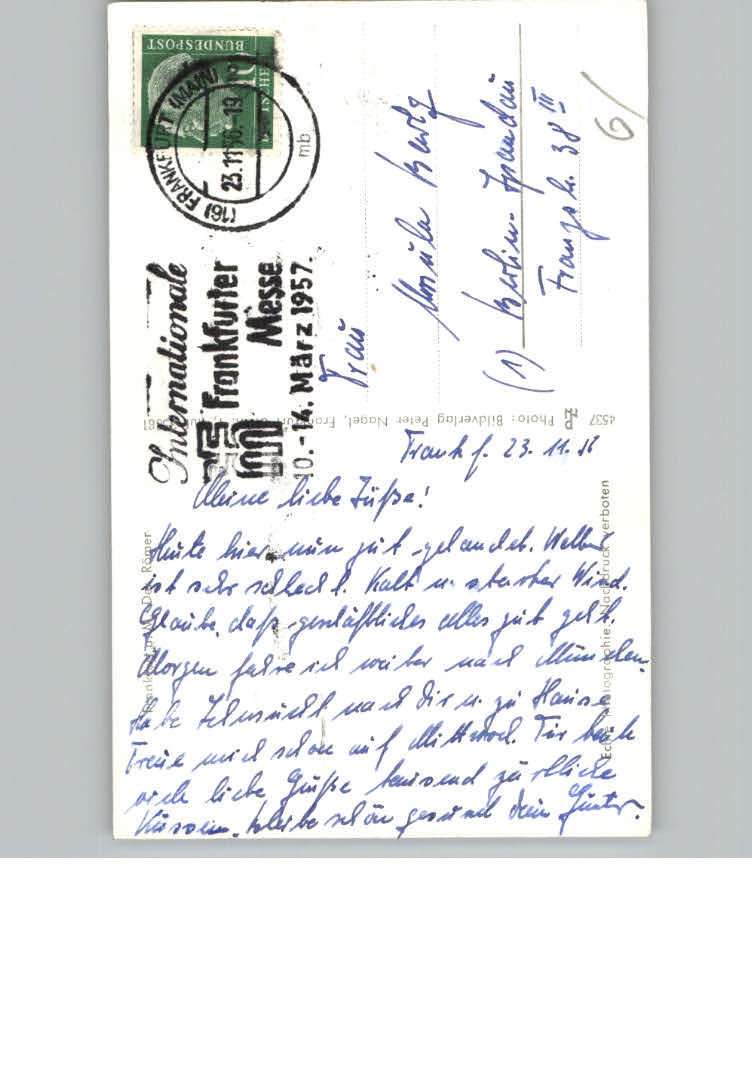 BUNDESPOST
(16) FRANKFURT (MAIN)
23.11.56.-19
mb
Internationale
Frankfurter
Messe
10.-14. März 1957.
6/
Frau
Ursula
(1) Berlin-Spandau
38 III
4537 Photo: Bildverlag Peter Nagel,
Frankf. 23.11.56
Meine liebe Süße!
Heute hier nun gut gelandet. Wetter
ist sehr schlecht. Kalt u. starker Wind.
Glaube, daß geschäftliches alles gut geht.
Morgen fahre ich weiter nach München.
Habe Sehnsucht nach Dir u. zu Hause
Freue mich schon auf Mittwoch. Für heute
viele liebe Grüße tausend zärtliche
Küssen. bleibe schön gesund dein Günter.
Der Römer
Echte Photographie - Nachdruck verboten